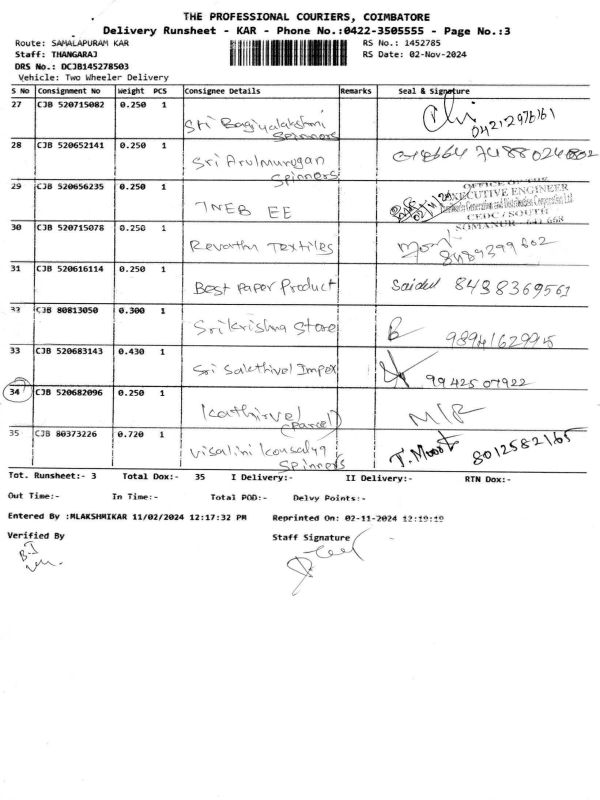 THE PROFESSIONAL COURIERS, COIMBATORE
Delivery Runsheet - KAR - Phone No.:0422-3505555 - Page No.:3
Route: SAMALAPURAM KAR RS No.: 1452785
Staff: THANGARAJ RS Date: 02-Nov-2024
DRS No.: DCJB145278503
Vehicle: Two Wheeler Delivery
S No Consignment No Weight PCS Consignee Details Remarks Seal & Signature
27 CJB 520715082 0.250 1 Sri Bagiyalakshmi Spinners 04212976161
28 CJB 520652141 0.250 1 Sri Arulmurugan Spinners 7488024802
29 CJB 520656235 0.250 1 TNEB EE
OFFICE OF THE
EXECUTIVE ENGINEER
Generation and Distribution Corporation Ltd
CEDC / SOUTH
SOMANUR - 641 668
30 CJB 520715078 0.250 1 Revathi Textiles 8489399602
31 CJB 520616114 0.250 1 Best paper product 8438369561
32 CJB 80813050 0.300 1 Srikrishna Store 9894162995
33 CJB 520683143 0.430 1 Sri Sakthivel Impex 9942507922
34 CJB 520682096 0.250 1 Kathirvel (Parcel) M/R
35 CJB 80373226 0.720 1 Visalini Kousalya Spinners 8012582165
Tot. Runsheet:- 3 Total Dox:- 35 I Delivery:- II Delivery:- RTN Dox:-
Out Time:- In Time:- Total POD:- Delvy Points:-
Entered By :MLAKSHMIKAR 11/02/2024 12:17:32 PM Reprinted On: 02-11-2024 12:19:19
Verified By Staff Signature